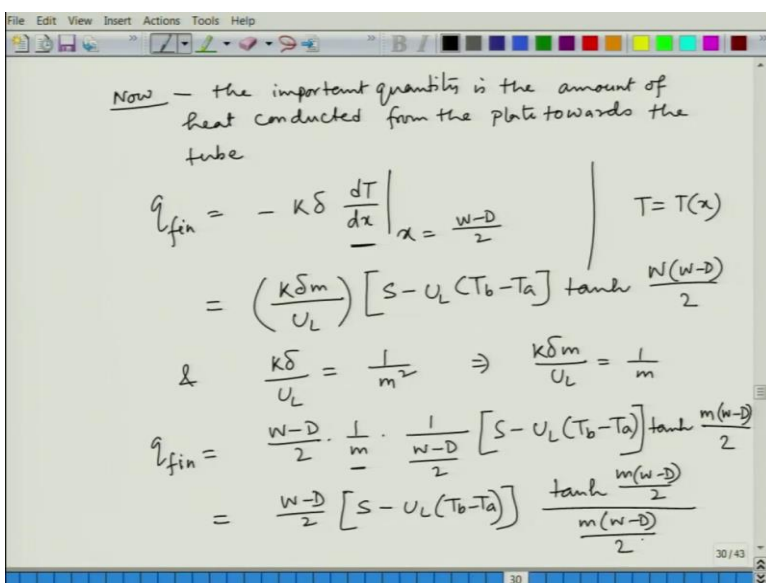 File Edit View Insert Actions Tools Help
Now — the important quantity is the amount of
heat conducted from the plate towards the
tube
q_fin = - Kδ dT/dx |_{x = (W-D)/2} | T = T(x)
= (Kδm/U_L) [S - U_L (T_b - T_a] tanh W(W-D)/2
& Kδ/U_L = 1/m² ⇒ Kδm/U_L = 1/m
q_fin = (W-D)/2 · 1/m · 1/((W-D)/2) [S - U_L (T_b - T_a)] tanh m(W-D)/2
= (W-D)/2 [S - U_L (T_b - T_a)] (tanh m(W-D)/2)/(m(W-D)/2)
30/43
30